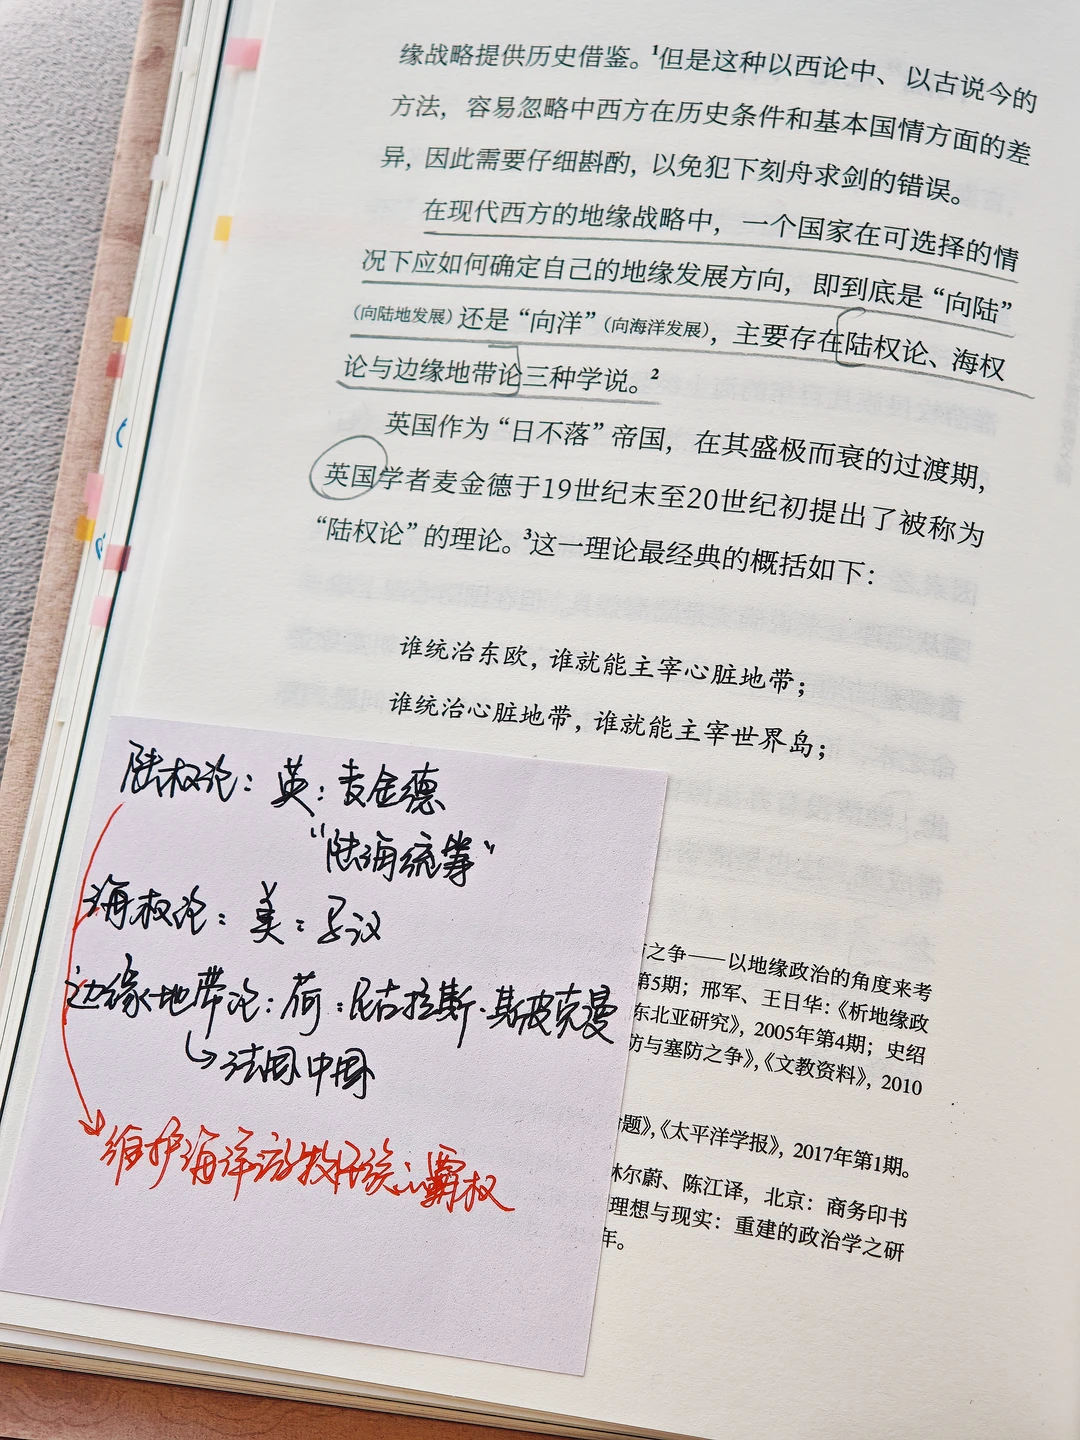 缘战略提供历史借鉴。¹但是这种以西论中、以古说今的
方法，容易忽略中西方在历史条件和基本国情方面的差
异，因此需要仔细斟酌，以免犯下刻舟求剑的错误。
在现代西方的地缘战略中，一个国家在可选择的情
况下应如何确定自己的地缘发展方向，即到底是“向陆”
（向陆地发展）还是“向洋”（向海洋发展），主要存在陆权论、海权
论与边缘地带论三种学说。²
英国作为“日不落”帝国，在其盛极而衰的过渡期，
英国学者麦金德于19世纪末至20世纪初提出了被称为
“陆权论”的理论。³这一理论最经典的概括如下：
谁统治东欧，谁就能主宰心脏地带；
谁统治心脏地带，谁就能主宰世界岛；
陆权论：英：麦金德
“陆海统筹”
海权论：美：马汉
边缘地带论：荷：尼古拉斯·斯皮克曼
法国 中国
维护海洋游牧民族的霸权
之争——以地缘政治的角度来考
第5期；邢军、王日华：《析地缘政
东北亚研究》，2005年第4期；史绍
防与塞防之争》，《文教资料》，2010
题》，《太平洋学报》，2017年第1期。
林尔蔚、陈江译，北京：商务印书
理想与现实：重建的政治学之研
年。